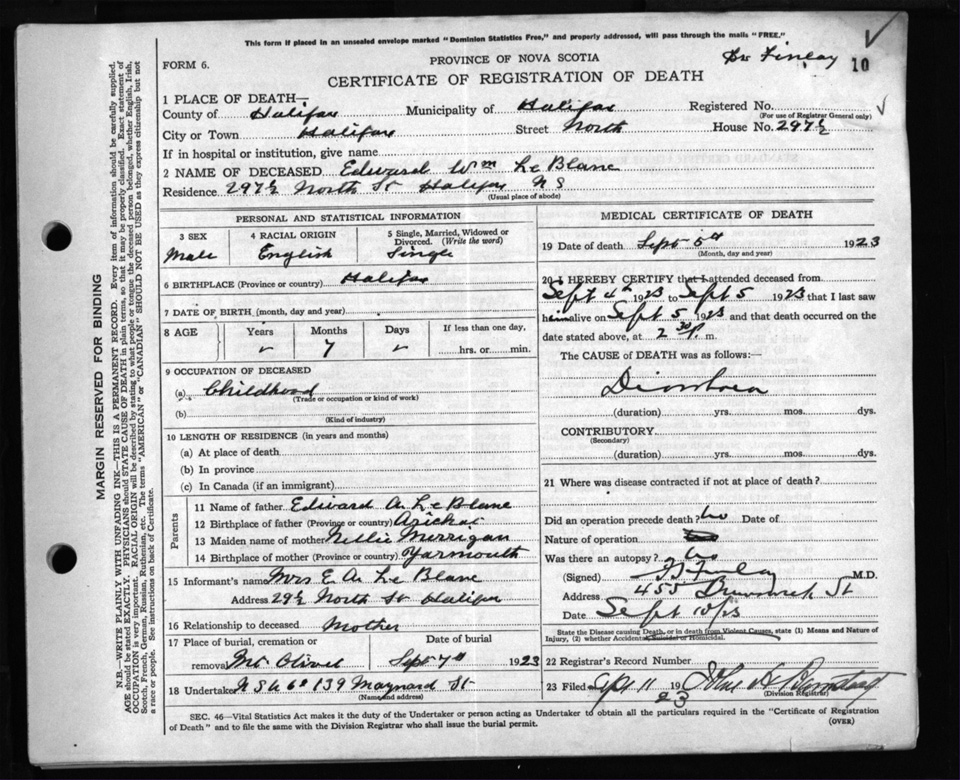 This form if placed in an unsealed envelope marked "Dominion Statistics Free," and properly addressed, will pass through the mails "FREE."
Dr Finlay 10
FORM 6.
PROVINCE OF NOVA SCOTIA
CERTIFICATE OF REGISTRATION OF DEATH
1 PLACE OF DEATH—
County of Halifax Municipality of Halifax Registered No.
(For use of Registrar General only)
City or Town Halifax Street North House No. 297½
If in hospital or institution, give name
2 NAME OF DECEASED Edward Wm Le Blanc
Residence 297½ North St Halifax N S
(Usual place of abode)
PERSONAL AND STATISTICAL INFORMATION
3 SEX 4 RACIAL ORIGIN 5 Single, Married, Widowed or Divorced. (Write the word)
Male English Single
6 BIRTHPLACE (Province or country) Halifax
7 DATE OF BIRTH (month, day and year)
8 AGE Years Months Days If less than one day,
7 hrs. or min.
9 OCCUPATION OF DECEASED
(a) Childhood
(Trade or occupation or kind of work)
(b)
(Kind of industry)
10 LENGTH OF RESIDENCE (in years and months)
(a) At place of death
(b) In province
(c) In Canada (if an immigrant)
Parents
11 Name of father Edward A. Le Blanc
12 Birthplace of father (Province or country) Arichat
13 Maiden name of mother Nellie Merrigan
14 Birthplace of mother (Province or country) Yarmouth
15 Informant's name Mrs E. A. Le Blanc
Address 29½ North St Halifax
16 Relationship to deceased Mother
17 Place of burial, cremation or Date of burial
removal Mt. Olivet Sept 7th 1923
18 Undertaker N S U Co 139 Maynard St
(Name and address)
MEDICAL CERTIFICATE OF DEATH
19 Date of death Sept 5th 1923
(Month, day and year)
20 I HEREBY CERTIFY that I attended deceased from
Sept 4th 1923 to Sept 5 1923 that I last saw
him alive on Sept 5 1923 and that death occurred on the
date stated above, at 2 30 P. m.
The CAUSE of DEATH was as follows:—
Diarrhoea
(duration) yrs. mos. dys.
CONTRIBUTORY
(Secondary)
(duration) yrs. mos. dys.
21 Where was disease contracted if not at place of death?
Did an operation precede death? No Date of
Nature of operation
Was there an autopsy? No
(Signed) Finlay M.D.
Address 455 St
Date Sept 10/23
State the Disease causing Death, or in death from Violent Causes, state (1) Means and Nature of
Injury, (2) whether Accidental, Suicidal or Homicidal.
22 Registrar's Record Number
23 Filed Sept 11 1923 John
(Division Registrar)
SEC. 46—Vital Statistics Act makes it the duty of the Undertaker or person acting as Undertaker to obtain all the particulars required in the "Certificate of Registration
of Death" and to file the same with the Division Registrar who shall issue the burial permit. (OVER)
MARGIN RESERVED FOR BINDING
N.B.—WRITE PLAINLY WITH UNFADING INK—THIS IS A PERMANENT RECORD. Every item of information should be carefully supplied.
AGE should be stated EXACTLY. PHYSICIANS should STATE CAUSE OF DEATH in plain terms, so that it may be properly classified. Exact statement of
OCCUPATION is very important. RACIAL ORIGIN will be described by stating to what people or tongue the deceased person belonged, whether English, Irish,
Scotch, French, German, Russian, Ruthenian, etc. The terms "AMERICAN" or "CANADIAN" SHOULD NOT BE USED as they express citizenship but not
a race or people. See instructions on back of Certificate.